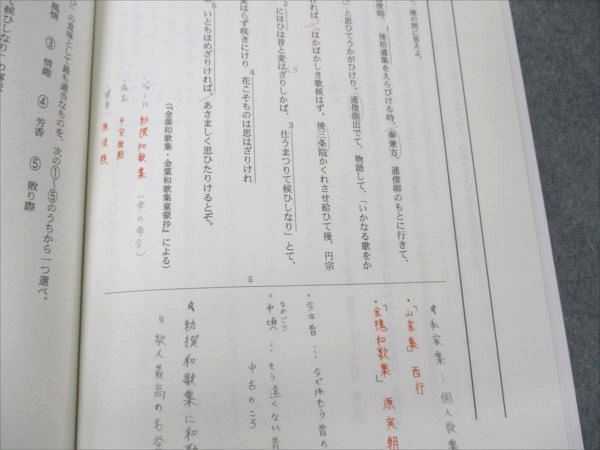 、後の問に答えよ。
後拾遺集をえらびける時、秦兼方、通俊卿のもとに行きて、
」と思ひてうかがひけり。通俊卿出でて、物語して、「いかなる歌をか
ければ、「はかばかしき歌候はず。後三条院かくれさせ給ひて後、円宗
にほひは昔と変はざりしかば、3仕うまつりて候ひしなり」とて、
変はらず咲きにけり 4花こそものは思はざりけれ
5いともほめざりければ、あさましく思ひたりけるとぞ。
(『金葉和歌集・金葉和歌集童蒙抄』による)
勅撰和歌集
平安後期
5
*私家集…個人歌集
・「山家集」西行
・「金槐和歌集」源実朝
・今は昔…今ではもう昔の
・中頃…そう遠くない昔
なかごろ
中古のころ
*勅撰和歌集に和歌
=歌人最高の名誉
の意味として最も適当なものを、次の①～⑤のうちから一つ選べ。
風情 ③ 情趣 ④ 芳香 ⑤ 散り際
候ひしなり」の解釈